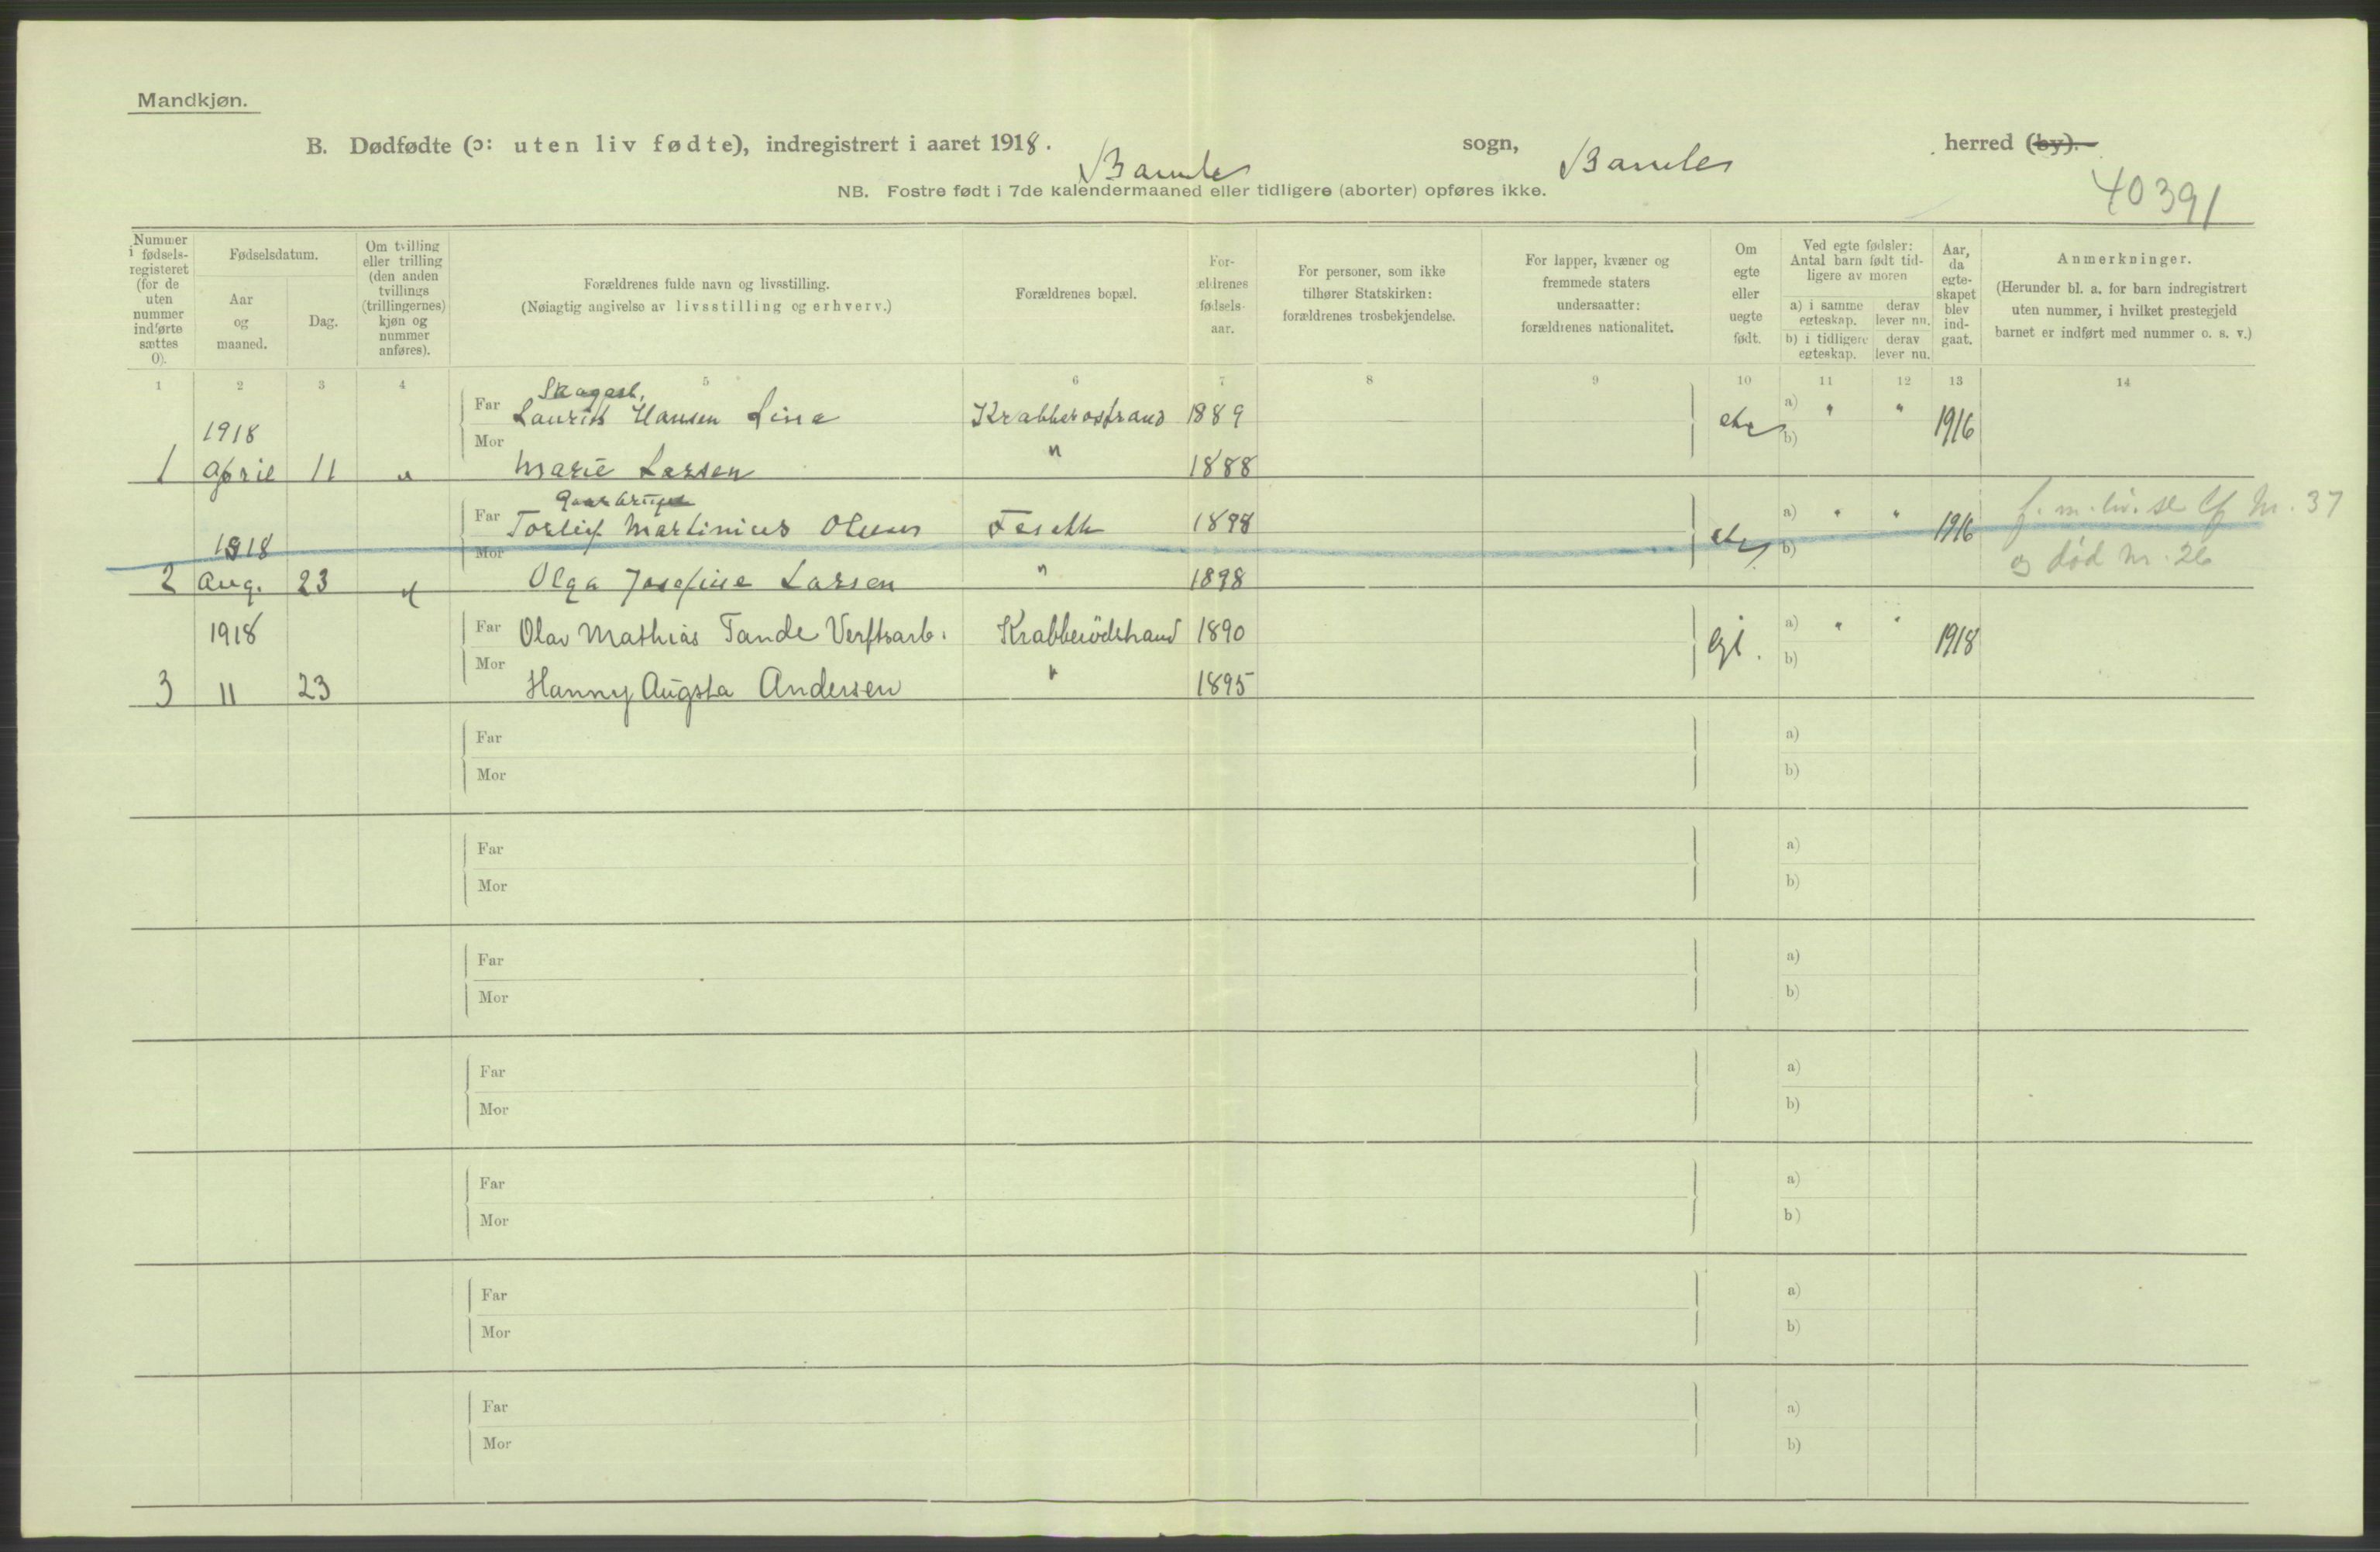 Mandkjøn.
B. Dødfødte (ɔ: uten liv fødte), indregistrert i aaret 1918. Bamle sogn, Bamle herred (by).
NB. Fostre født i 7de kalendermaaned eller tidligere (aborter) opføres ikke.
40391
Nummer i fødsels-registeret (for de uten nummer indførte sættes 0).
Fødselsdatum.
Aar og maaned.
Dag.
Om tvilling eller trilling (den anden tvillings (trillingernes) kjøn og nummer anføres).
Forældrenes fulde navn og livsstilling.
(Nøiagtig angivelse av livsstilling og erhverv.)
Forældrenes bopæl.
For-ældrenes fødsels-aar.
For personer, som ikke tilhører Statskirken: forældrenes trosbekjendelse.
For lapper, kvæner og fremmede staters undersaatter: forældrenes nationalitet.
Om egte eller uegte født.
Ved egte fødsler: Antal barn født tid-ligere av moren
a) i samme egteskap.
derav lever nu.
b) i tidligere egteskap.
derav lever nu.
Aar, da egte-skapet blev ind-gaat.
Anmerkninger.
(Herunder bl. a. for barn indregistrert uten nummer, i hvilket prestegjeld barnet er indført med nummer o. s. v.)
1 2 3 4 5 6 7 8 9 10 11 12 13 14
Far Laurits Hansen 1889 a) " "
1918 1916
Mor b)
1 April 11 " Marie Larsen " 1888
Far Torleif Martinius Olsen 1898 a) " " 1916 Nr. 37
1918
Mor b) og død nr. 26
2 Aug. 23 Olga Josefine Larsen " 1898
1918 Far Olav Mathias Tande Verftsarb. Krabberödstrand 1890 a) " "
1918
Mor b)
3 11 23 Hanny Augsta Andersen " 1895
Far a)
Mor b)
Far a)
Mor b)
Far a)
Mor b)
Far a)
Mor b)
Far a)
Mor b)
Far a)
Mor b)
Far a)
Mor b)